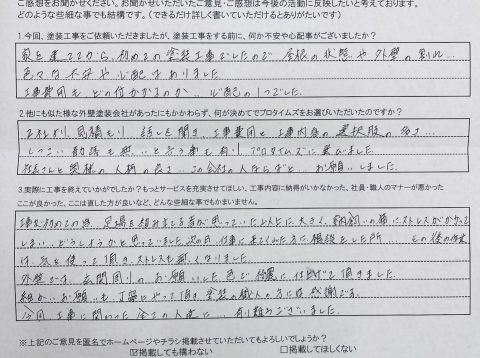 ご感想をお聞かせください。お聞かせいただいたご意見・ご感想は今後の活動に反映したいと考えております。
どのような些細な事でも結構です。（できるだけ詳しく書いていただけるとありがたいです）
1.今回、塗装工事をご依頼いただきましたが、塗装工事をする前に、何か不安や心配事がございましたか？
家を建ててから、初めての塗装工事でしたので 屋根の状態や外壁の割れ…
色々な不安や心配はありました。
工事費用も、どの位かかるのか… 心配の1つでした。
2.他にも似た様な外壁塗装会社があったにもかかわらず、何が決めてでプロタイムズをお選びいただいたのですか？
2社より、見積もり、話しを聞き、工事費用と工事内容の選択肢の多さ…
しつこい勧誘も無いと言う事も有り プロタイムズに選びました。
社長さんと奥様の人柄の良さ… この会社の人ならばと… お願いしました。
3.実際に工事を終えていかがでしたか？もっとサービスを充実させてほしい、工事内容に納得がいかなかった、社員・職人のマナーが悪かった
ここが良かった、ここは直した方が良いなど、どんな些細な事でもかまいません。
工事を初めての為、足場を組み立てる音が思っていた以上に大きく、飼の猫にストレスがかかって
しまい… どうしようかと思っていました。次の日、仕事に来てくれた方に相談をした所… その後の作業
は、気を使って頂き、ストレスも無くなりました。
外壁では、玄関周りのお願いした色で綺麗に仕上げて頂きました。
細かいお願いも丁寧にやって頂き、塗装の職人の方には感謝です。
今回、工事に関わった全ての人達に… 有り難うございました。
※上記のご意見を匿名でホームページやチラシ掲載させていただいてもよろしいでしょうか？
☑掲載しても構わない　□掲載してほしくない